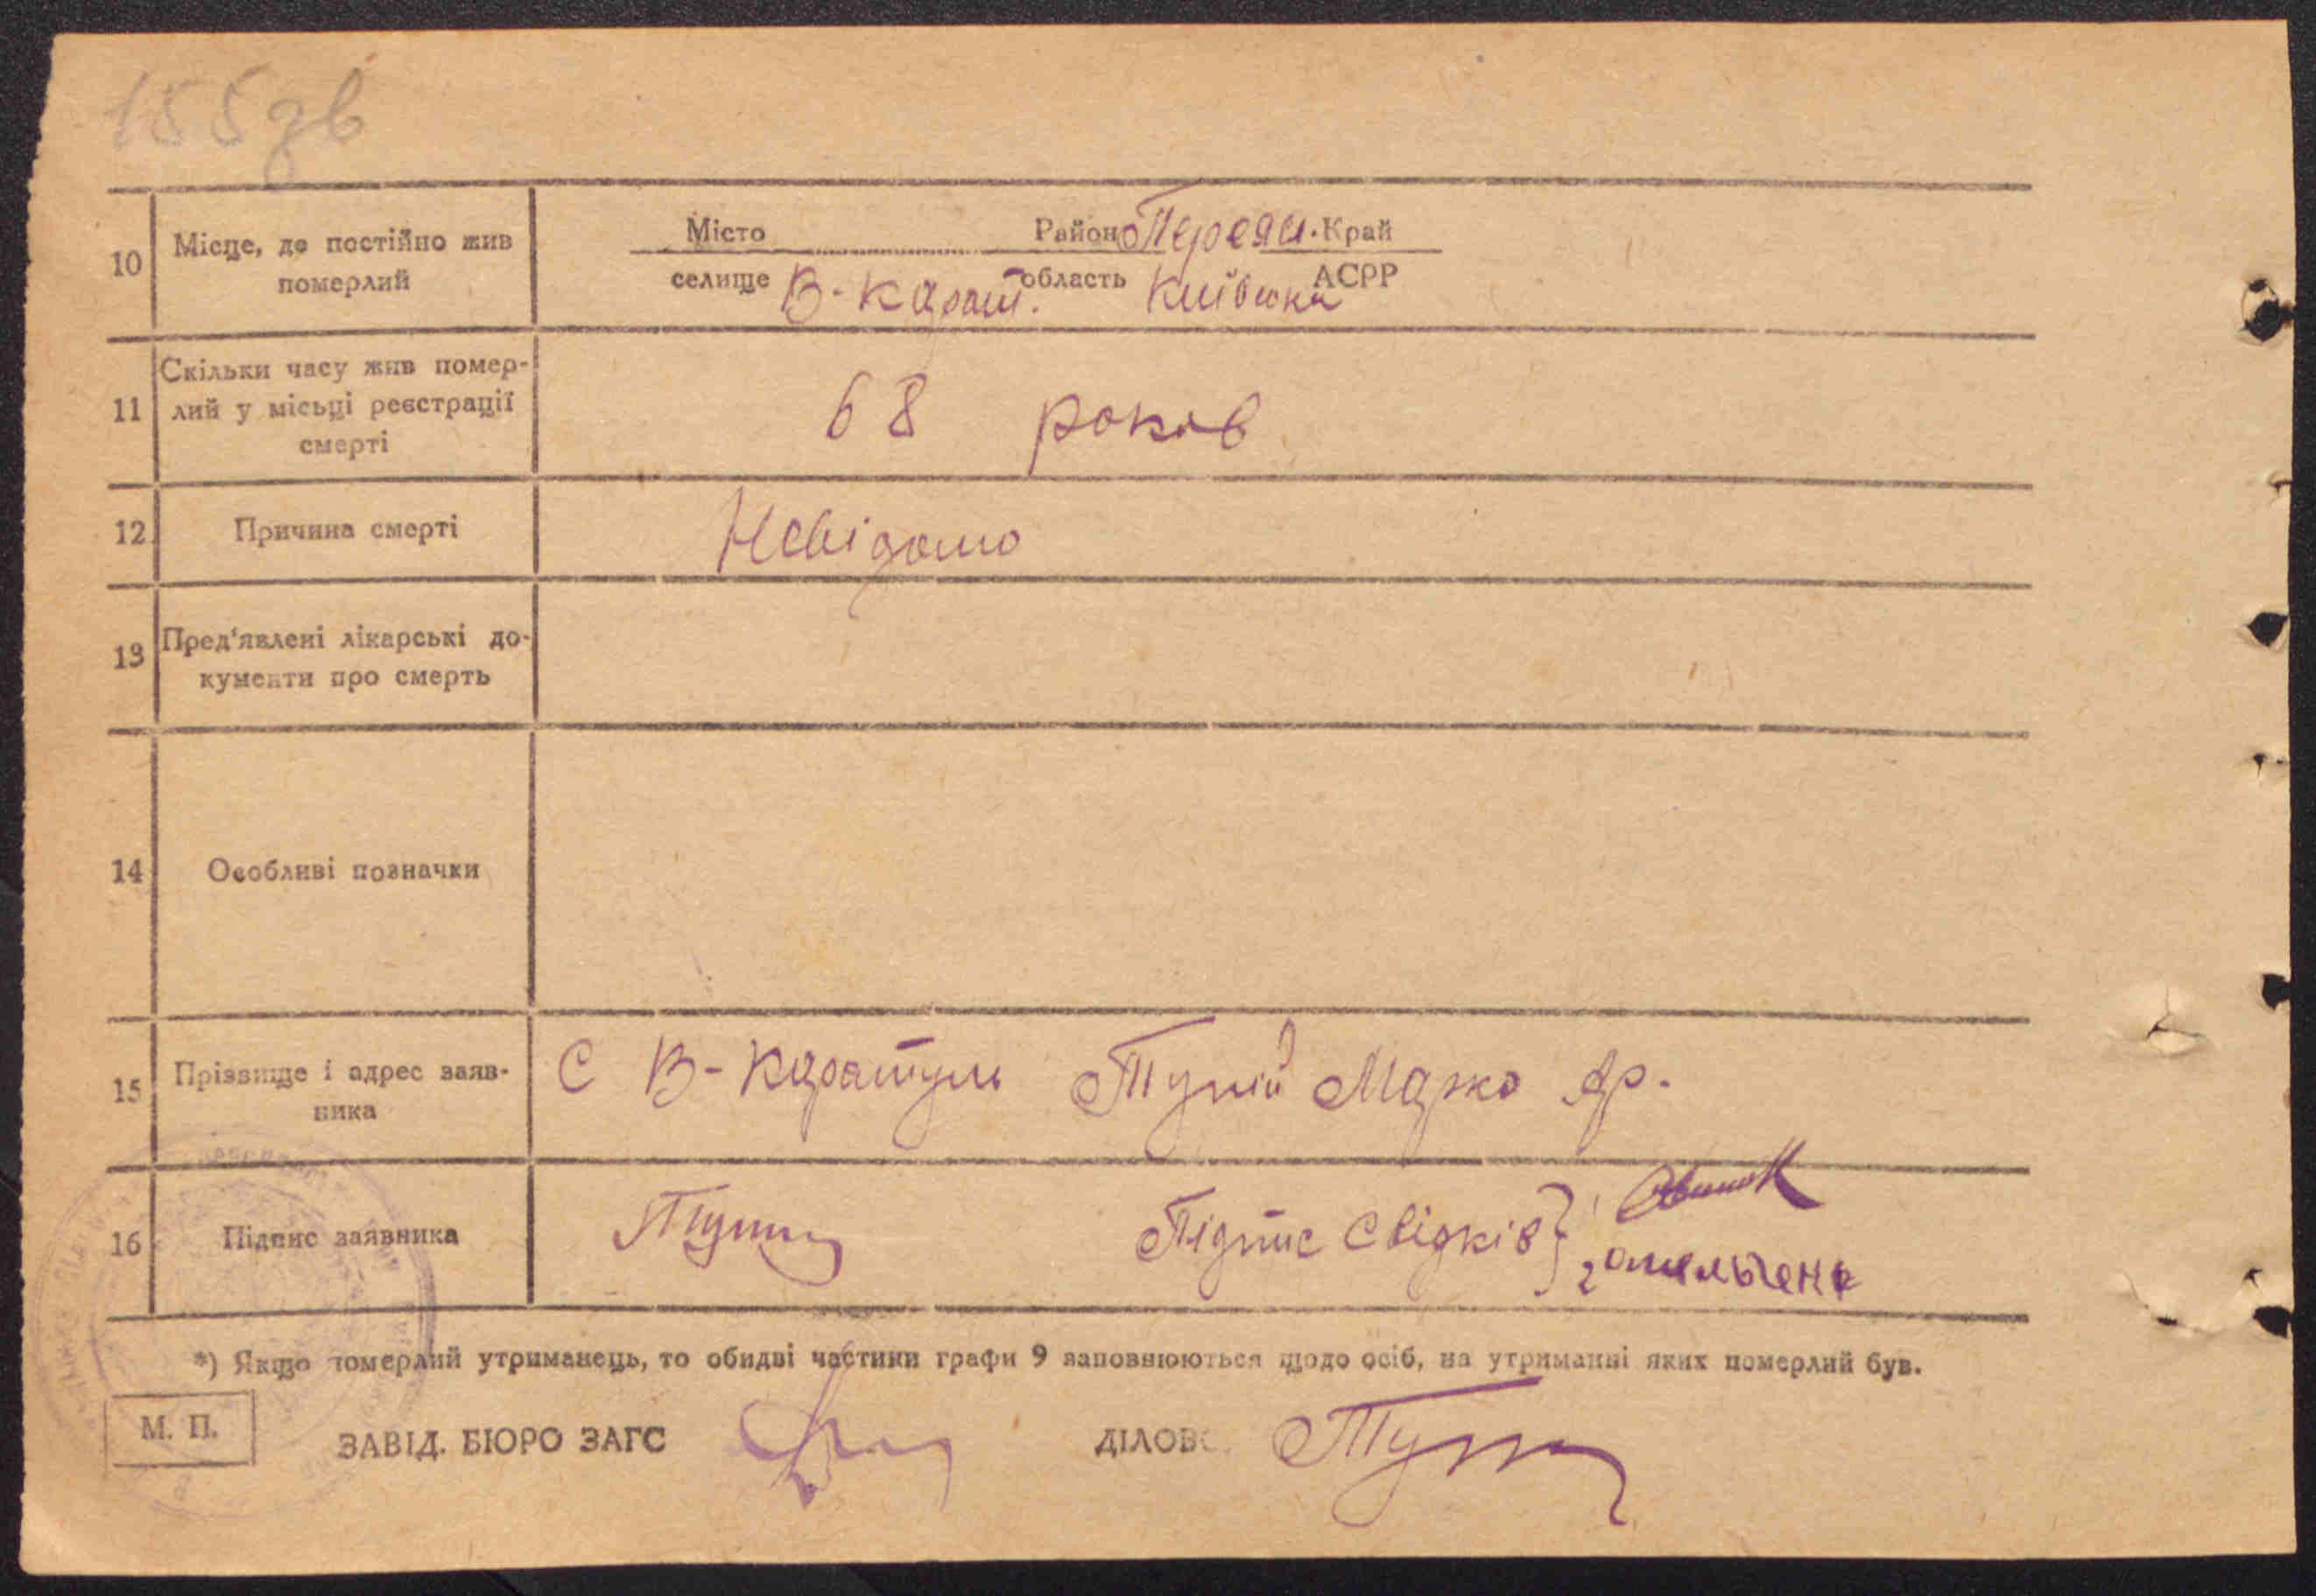 155 зв
10 Місце, де постійно жив померлий
Місто Район Переяс. Край
селище В-Карат. область Київська АСРР
11 Скільки часу жив помер-
лий у місьці реєстрації
смерті
68 років
12 Причина смерті
Невідомо
13 Пред'явлені лікарські до-
кументи про смерть
14 Особливі позначки
15 Прізвище і адрес заяв-
ника
С В-Каратуль Тупій Марко Др.
16 Підпис заявника
Підпис свідків
2 Омельчене
*) Якщо померлий утриманець, то обидві частини графи 9 заповнюються щодо осіб, на утриманні яких померлий був.
М. П.
ЗАВІД. БЮРО ЗАГС
ДІЛОВ